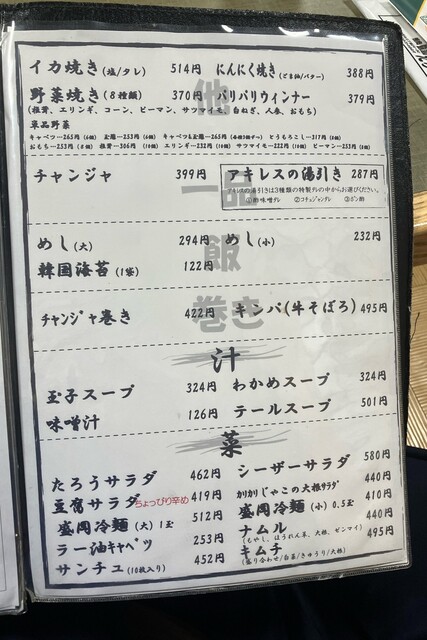 他
イカ焼き(塩/タレ) 514円 にんにく焼き(ごま油/バター) 388円
野菜焼き(8種類) 370円 パリパリウィンナー 379円
(椎茸、エリンギ、コーン、ピーマン、サツマイモ、白ねぎ、人参、おもち)
単品野菜
キャベツ…265円(6個) 玉葱…253円(4個) キャベツ&玉葱…265円 とうもろこし…317円(8個)
おもち…253円(8個) 椎茸…306円(10個) エリンギ…232円(10個) サツマイモ…222円(10個) ピーマン…253円(8個)
一品
チャンジャ 399円 アキレスの湯引き 287円
アキレスの湯引きは3種類の特製外の中からお選びください。
①酢味噌ダレ ②コチュジャンダレ ③ポン酢
飯
めし(大) 294円 めし(小) 232円
韓国海苔(1袋) 122円
巻き
チャンジャ巻き 422円 キンパ(牛そぼろ) 495円
汁
玉子スープ 324円 わかめスープ 324円
味噌汁 126円 テールスープ 501円
菜
たろうサラダ 462円 シーザーサラダ 580円
豆腐サラダちょっぴり辛め 419円 カリカリじゃこの大根サラダ 440円
盛岡冷麺(大)1玉 512円 盛岡冷麺(小)0.5玉 410円
ラー油キャベツ 253円 ナムル 440円
(もやし、ほうれん草、大根、ゼンマイ)
サンチュ(10枚入り) 452円 キムチ 495円
(盛り合わせ/白菜/きゅうり/大根) 440円